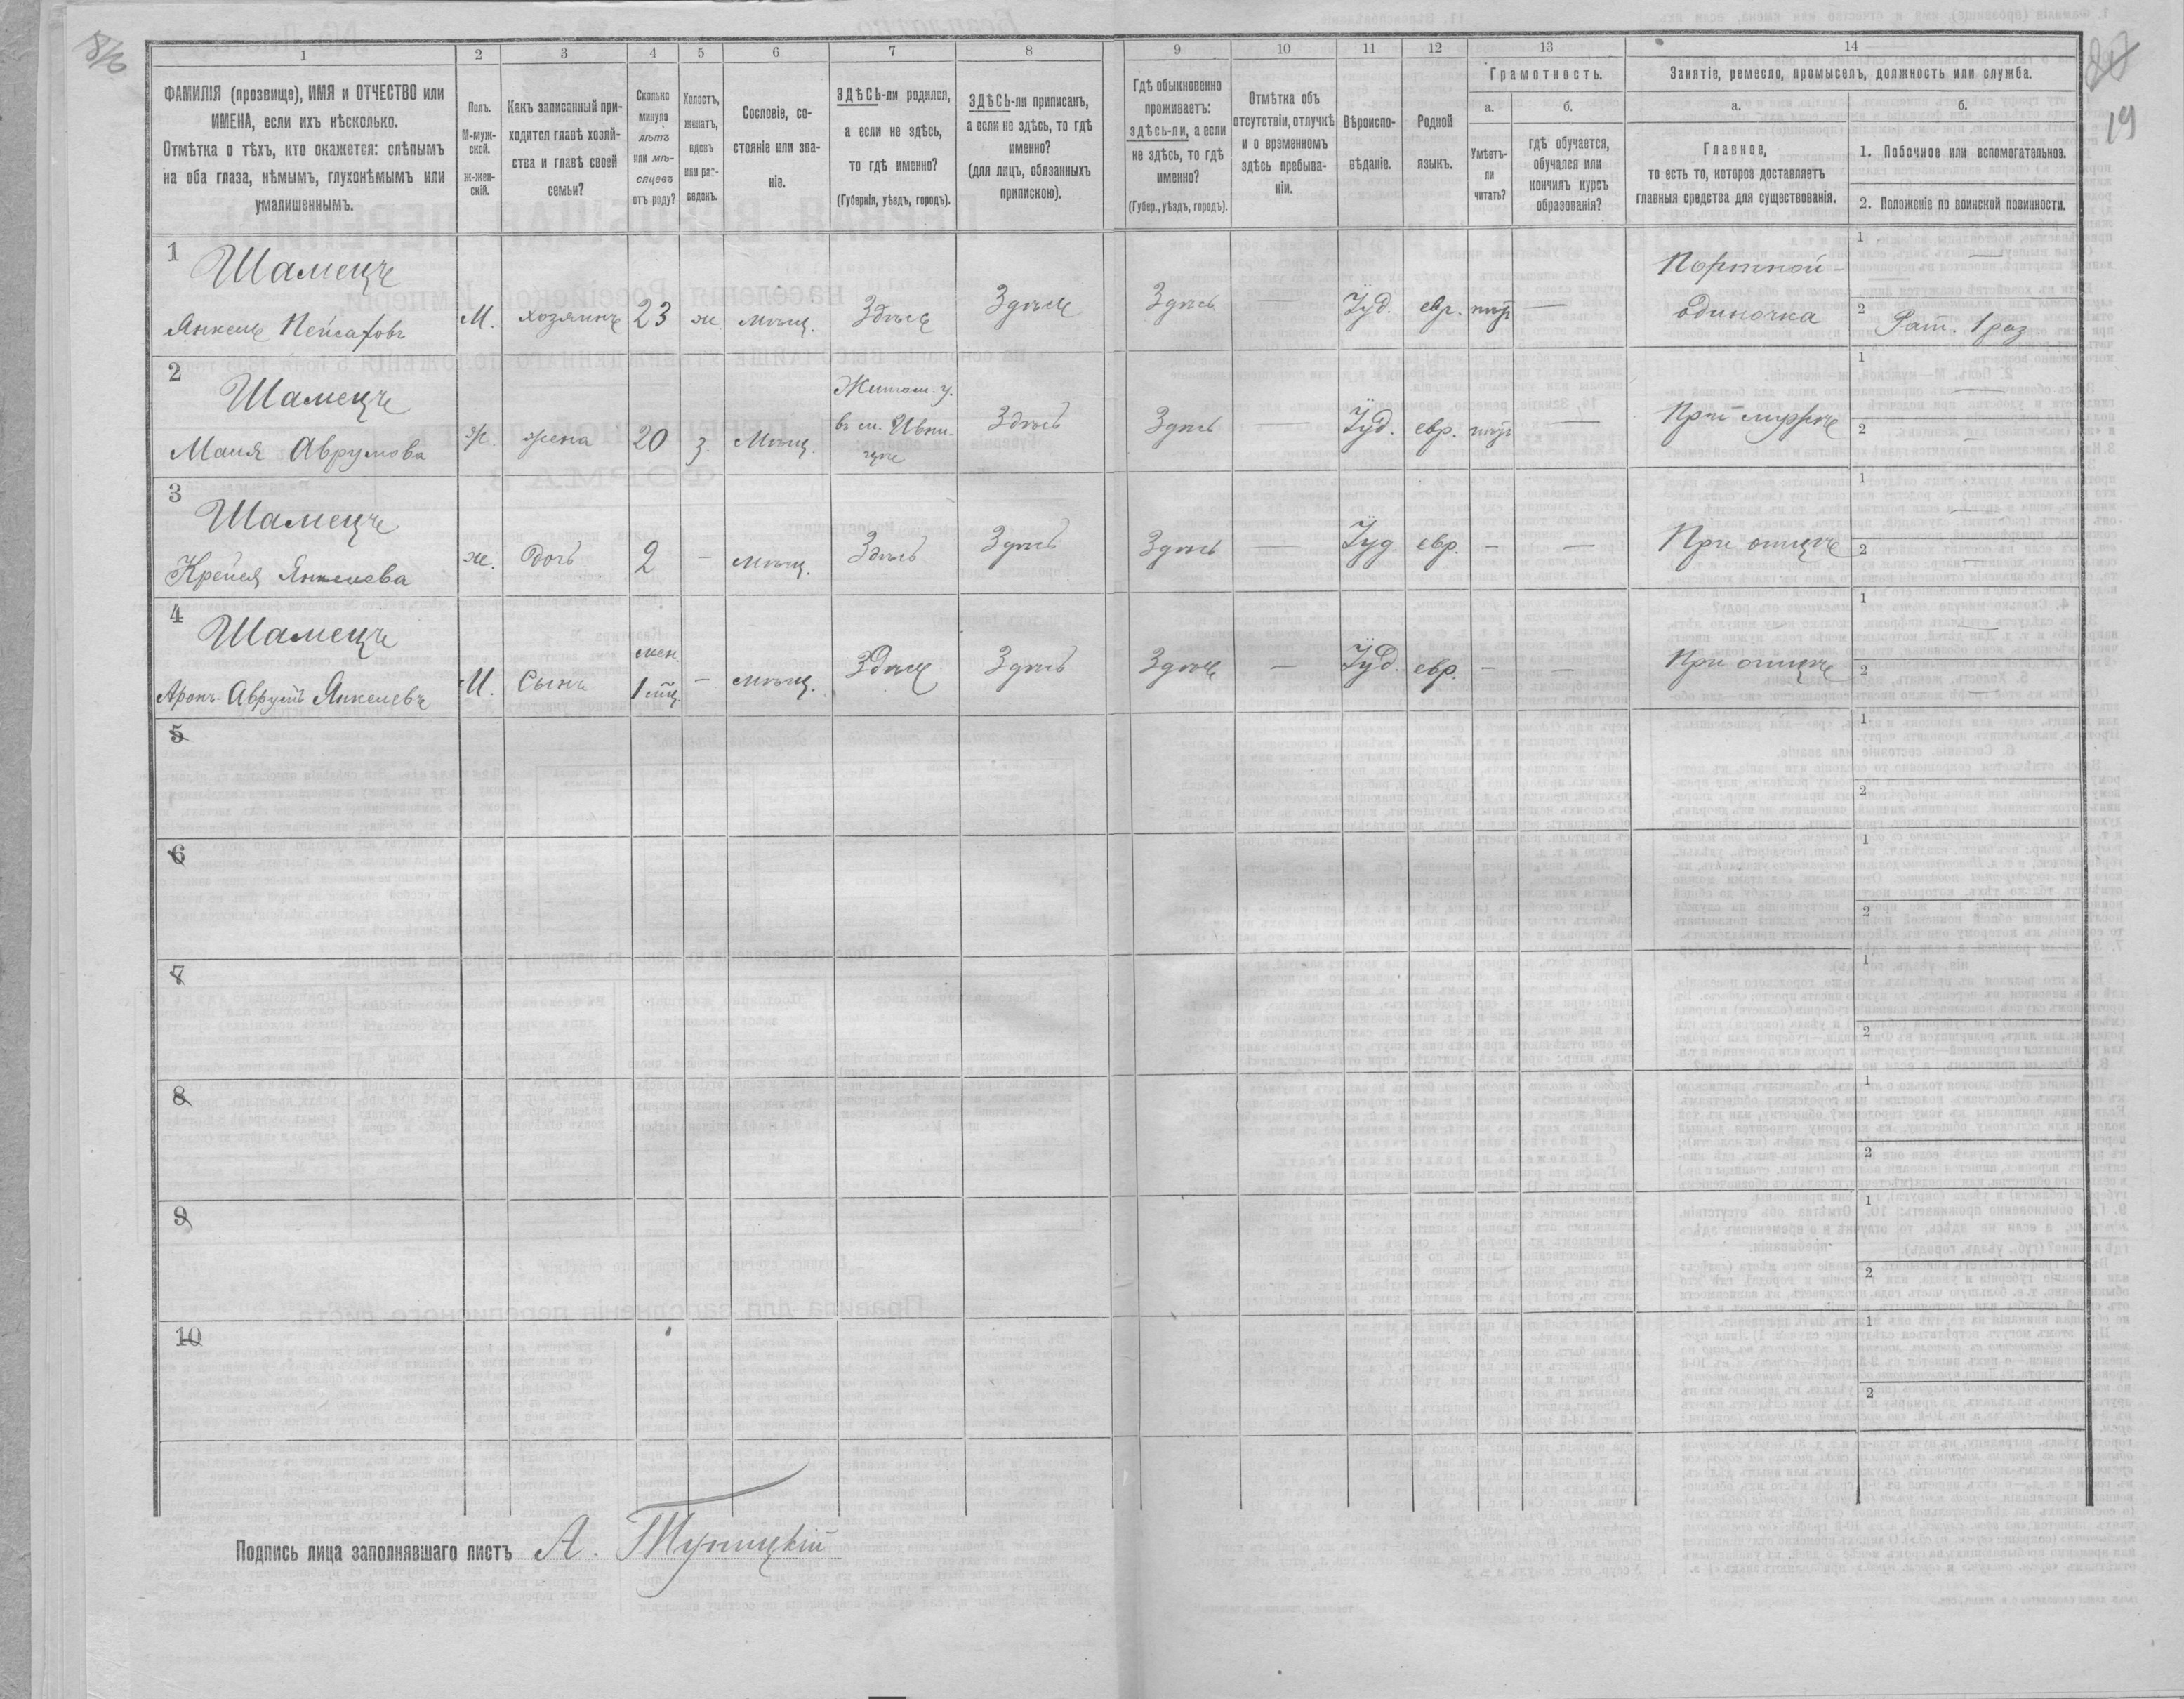 19
1 2 3 4 5 6 7 8 9 10 11 12 13 14
ФАМИЛІЯ (прозвище), ИМЯ и ОТЧЕСТВО или
ИМЕНА, если ихъ нѣсколько.
Отмѣтка о тѣхъ, кто окажется: слѣпымъ
на оба глаза, нѣмымъ, глухонѣмымъ или
умалишеннымъ.
Полъ.
М-муж-
ской.
ж-жен-
скій.
Какъ записанный при-
ходится главѣ хозяй-
ства и главѣ своей
семьи?
Сколько
минуло
лѣтъ
или мѣ-
сяцевъ
отъ роду?
Холостъ,
женатъ,
вдовъ
или раз-
веденъ.
Сословіе, со-
стояніе или зва-
ніе.
ЗДѢСЬ-ли родился,
а если не здѣсь,
то гдѣ именно?
(Губернія, уѣздъ, городъ).
ЗДѢСЬ-ли приписанъ,
а если не здѣсь, то гдѣ
именно?
(для лицъ, обязанныхъ
припискою).
Гдѣ обыкновенно
проживаетъ:
здѣсь-ли, а если
не здѣсь, то гдѣ
именно?
(Губер., уѣздъ, городъ).
Отмѣтка объ
отсутствіи, отлучкѣ
и о временномъ
здѣсь пребыва-
ніи.
Вѣроиспо-
вѣданіе.
Родной
языкъ.
Грамотность.
а.
Умѣетъ-
ли
читать?
б.
гдѣ обучается,
обучался или
кончилъ курсъ
образованія?
Занятіе, ремесло, промыселъ, должность или служба.
а.
Главное,
то есть то, которое доставляетъ
главныя средства для существованія.
б.
1. Побочное или вспомогательное.
2. Положеніе по воинской повинности.
1
Шамецъ
Янкель Пейсаховъ
М. хозяинъ 23 ж. мѣщ. Здѣсь Здѣсь Здѣсь — Іуд. евр. —
Портной-
одиночка
1 —
2 Рат. 1 раз.
2
Шамецъ
Маня Аврумова
Ж. жена 20 з. мѣщ.
Житом. у.
въ м. Ивни-
цѣ
Здѣсь Здѣсь — Іуд. евр. —
При мужѣ
1 —
2 —
3
Шамецъ
Крейся Янкелева
ж. дочь 2 — мѣщ. Здѣсь Здѣсь Здѣсь — Іуд. евр. — —
При отцѣ
1 —
2
4
Шамецъ
Аронъ-Аврумъ Янкелевъ
М. Сынъ
мен.
1 мѣц.
— мѣщ. Здѣсь Здѣсь Здѣсь — Іуд. евр. — —
При отцѣ
1 —
2 —
5
1
2
6
1
2
7
1
2
8
1
2
9
1
2
10
1
2
Подпись лица заполнявшаго листъ А. Тупицкій